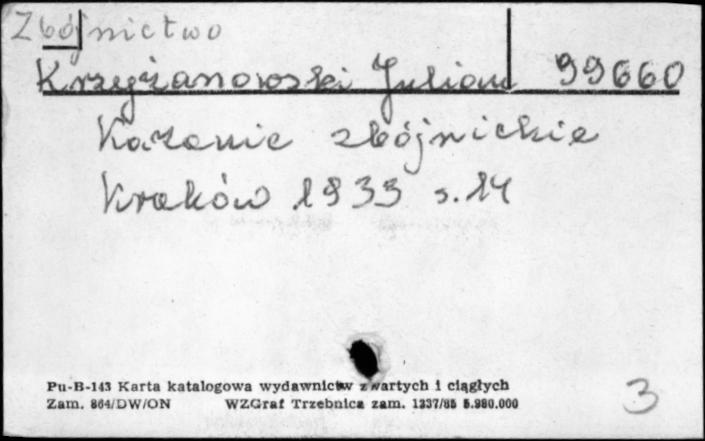 Zbójnictwo
Krzyżanowski Julian 99660
Kazanie zbójnickie
Kraków 1933 s. 14
Pu-B-143 Karta katalogowa wydawnictw zwartych i ciągłych
Zam. 864/DW/ON WZGraf Trzebnica zam. 1237/85 5.980.000
3